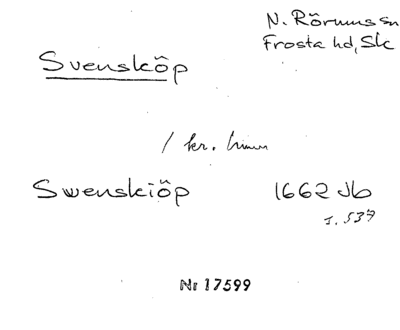 N. Rörums sn
Frosta hd, Sk
Svensköp
1 kr. hmn
Swenskiöp 1662 Jb
s. 537
Nr 17599